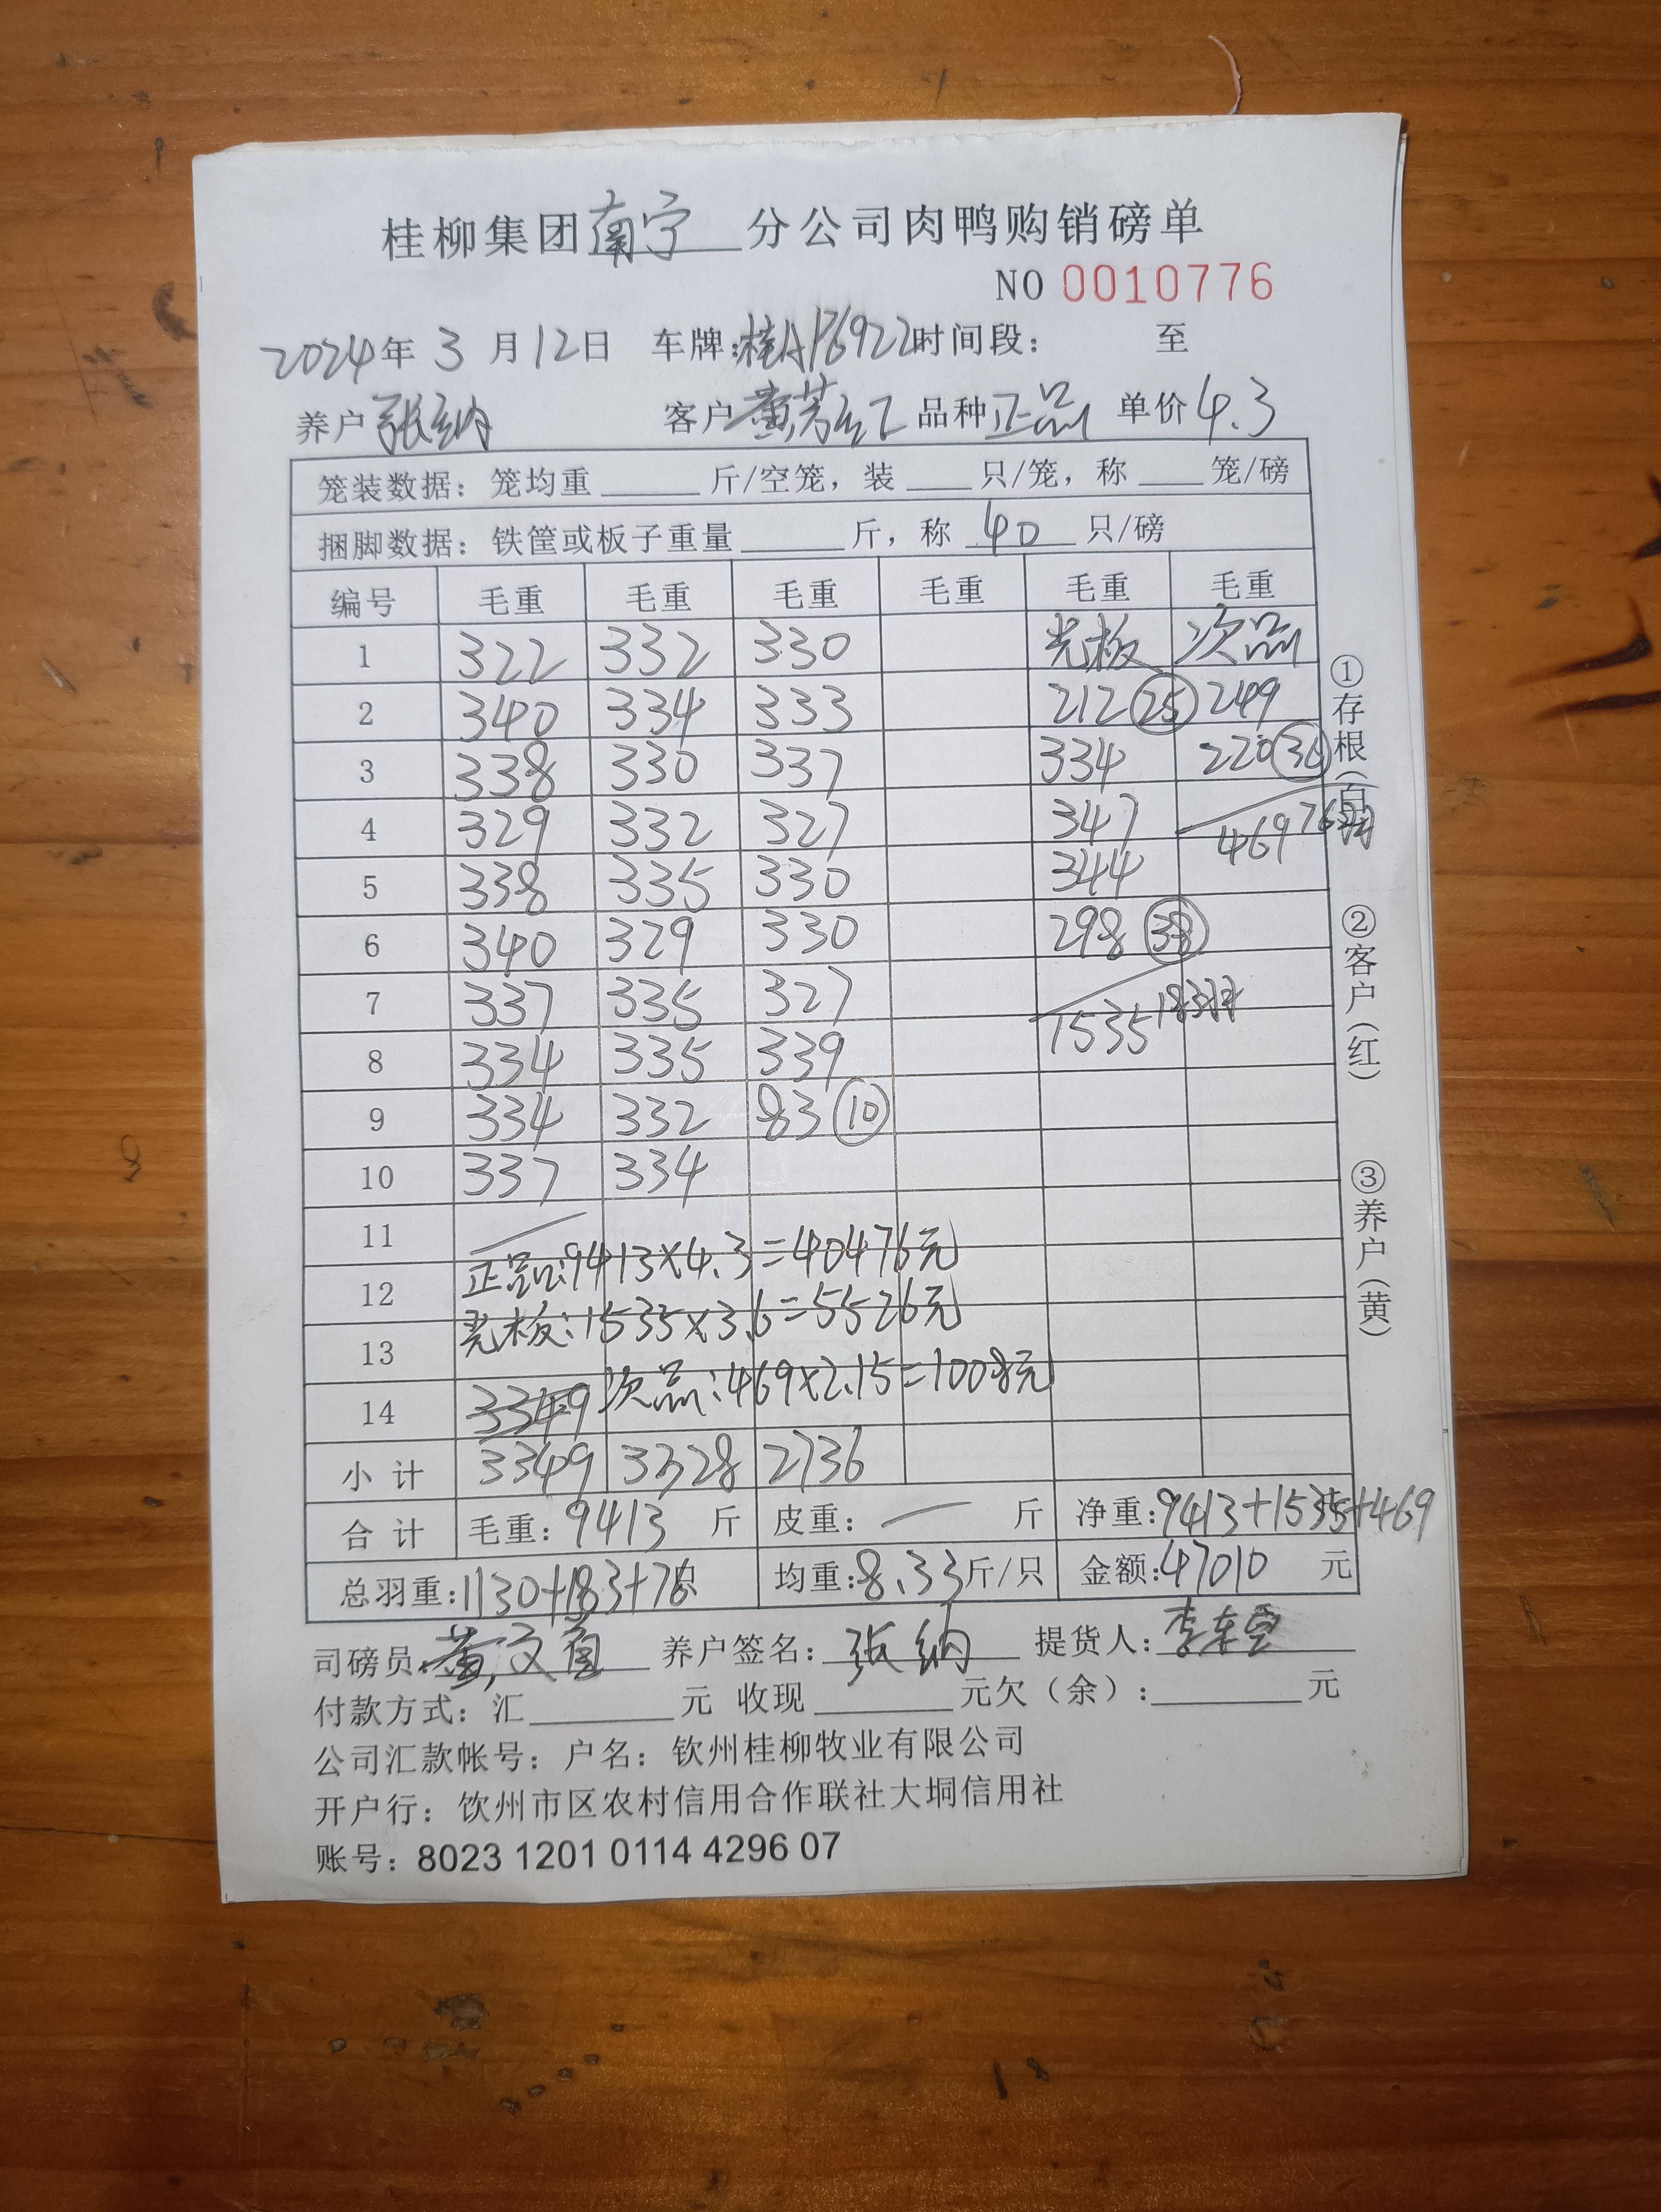 桂柳集团南宁分公司肉鸭购销磅单
NO 0010776
2024年3月12日 车牌:桂AP6922时间段: 至
养户 张纳 客户 黄芳 品种 正品 单价 4.3
笼装数据:笼均重____斤/空笼,装____只/笼,称____笼/磅
捆脚数据:铁筐或板子重量____斤,称 40 只/磅
编号 毛重 毛重 毛重 毛重 毛重 毛重
1 322 332 330 光板 次品
2 340 334 333 212 25 249
3 338 330 337 334 220 36
4 329 332 327 347 469 76羽
5 338 335 330 344
6 340 329 330 298 38
7 337 335 327 1535 183羽
8 334 335 339
9 334 332 83 10
10 337 334
11
12 正品:9413×4.3=40476元
13 光板:1535×3.6=5526元
14 3349 次品:469×2.15=1008元
小计 3349 3328 2736
合计 毛重:9413 斤 皮重: — 斤 净重:9413+1535+469
总羽重:1130+183+76只 均重:8.33斤/只 金额:47010 元
司磅员: 黄文 养户签名: 张纳 提货人: 李
付款方式:汇____元 收现____元欠(余):____元
公司汇款帐号:户名:钦州桂柳牧业有限公司
开户行:饮州市区农村信用合作联社大垌信用社
账号:8023 1201 0114 4296 07
①存根(白)
②客户(红)
③养户(黄)